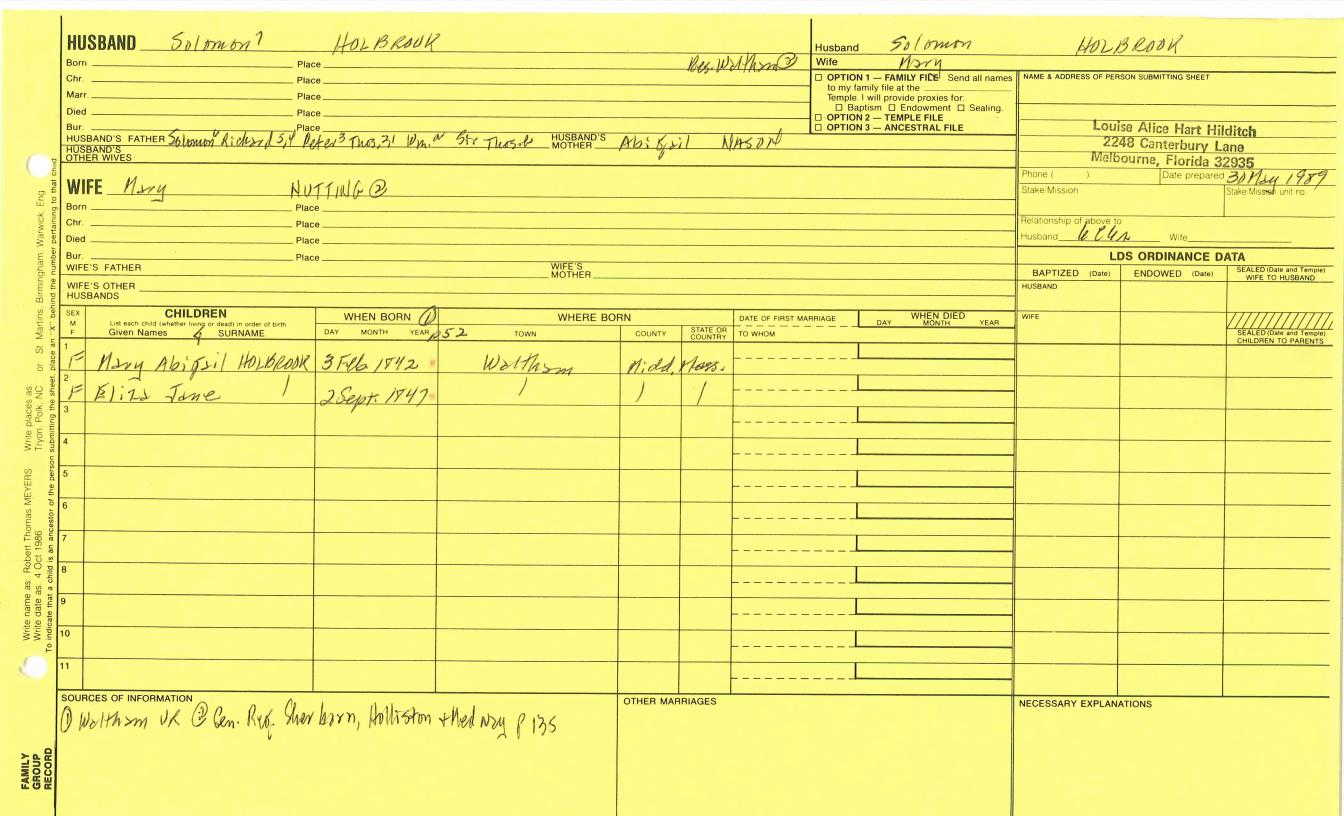 HUSBAND Solomon 7 HOLBROOK
Born Place Res. Waltham ②
Chr. Place
Marr. Place
Died Place
Bur. Place
HUSBAND'S FATHER Solomon 6 Richard 5,4 Peter 3 Thos. HUSBAND'S MOTHER Abigail NASON
HUSBAND'S OTHER WIVES
WIFE Mary NUTTING ②
Born Place
Chr. Place
Died Place
Bur. Place
WIFE'S FATHER WIFE'S MOTHER
WIFE'S OTHER HUSBANDS
Husband Solomon HOLBROOK
Wife Mary
☐ OPTION 1 — FAMILY FILE Send all names
to my family file at the
Temple. I will provide proxies for:
☐ Baptism ☐ Endowment ☐ Sealing.
☐ OPTION 2 — TEMPLE FILE
☐ OPTION 3 — ANCESTRAL FILE
NAME & ADDRESS OF PERSON SUBMITTING SHEET
Louise Alice Hart Hilditch
2248 Canterbury Lane
Melbourne, Florida 32935
Phone ( ) Date prepared 30 May 1989
Stake/Mission Stake/Mission unit no.
Relationship of above to
Husband Wife
LDS ORDINANCE DATA
BAPTIZED (Date) ENDOWED (Date) SEALED (Date and Temple) WIFE TO HUSBAND
HUSBAND
WIFE
SEALED (Date and Temple) CHILDREN TO PARENTS
SEX M F
CHILDREN
List each child (whether living or dead) in order of birth
Given Names SURNAME
WHEN BORN ①
DAY MONTH YEAR p52
WHERE BORN
TOWN COUNTY STATE OR COUNTRY
DATE OF FIRST MARRIAGE
TO WHOM
WHEN DIED
DAY MONTH YEAR
1 F Mary Abigail HOLBROOK 3 Feb 1842 Waltham Midd. Mass.
2 F Eliza Jane 2 Sept. 1847
3
4
5
6
7
8
9
10
11
SOURCES OF INFORMATION
① Waltham VR ② Gen. Reg. Sherborn, Holliston + Medway p 135
OTHER MARRIAGES
NECESSARY EXPLANATIONS
Write name as: Robert Thomas MEYERS Write places as: Tryon, Polk, NC or St. Martins, Birmingham, Warwick, Eng.
Write date as: 4 Oct 1986
To indicate that a child is an ancestor of the person submitting the sheet, place an "X" behind the number pertaining to that child
FAMILY GROUP RECORD